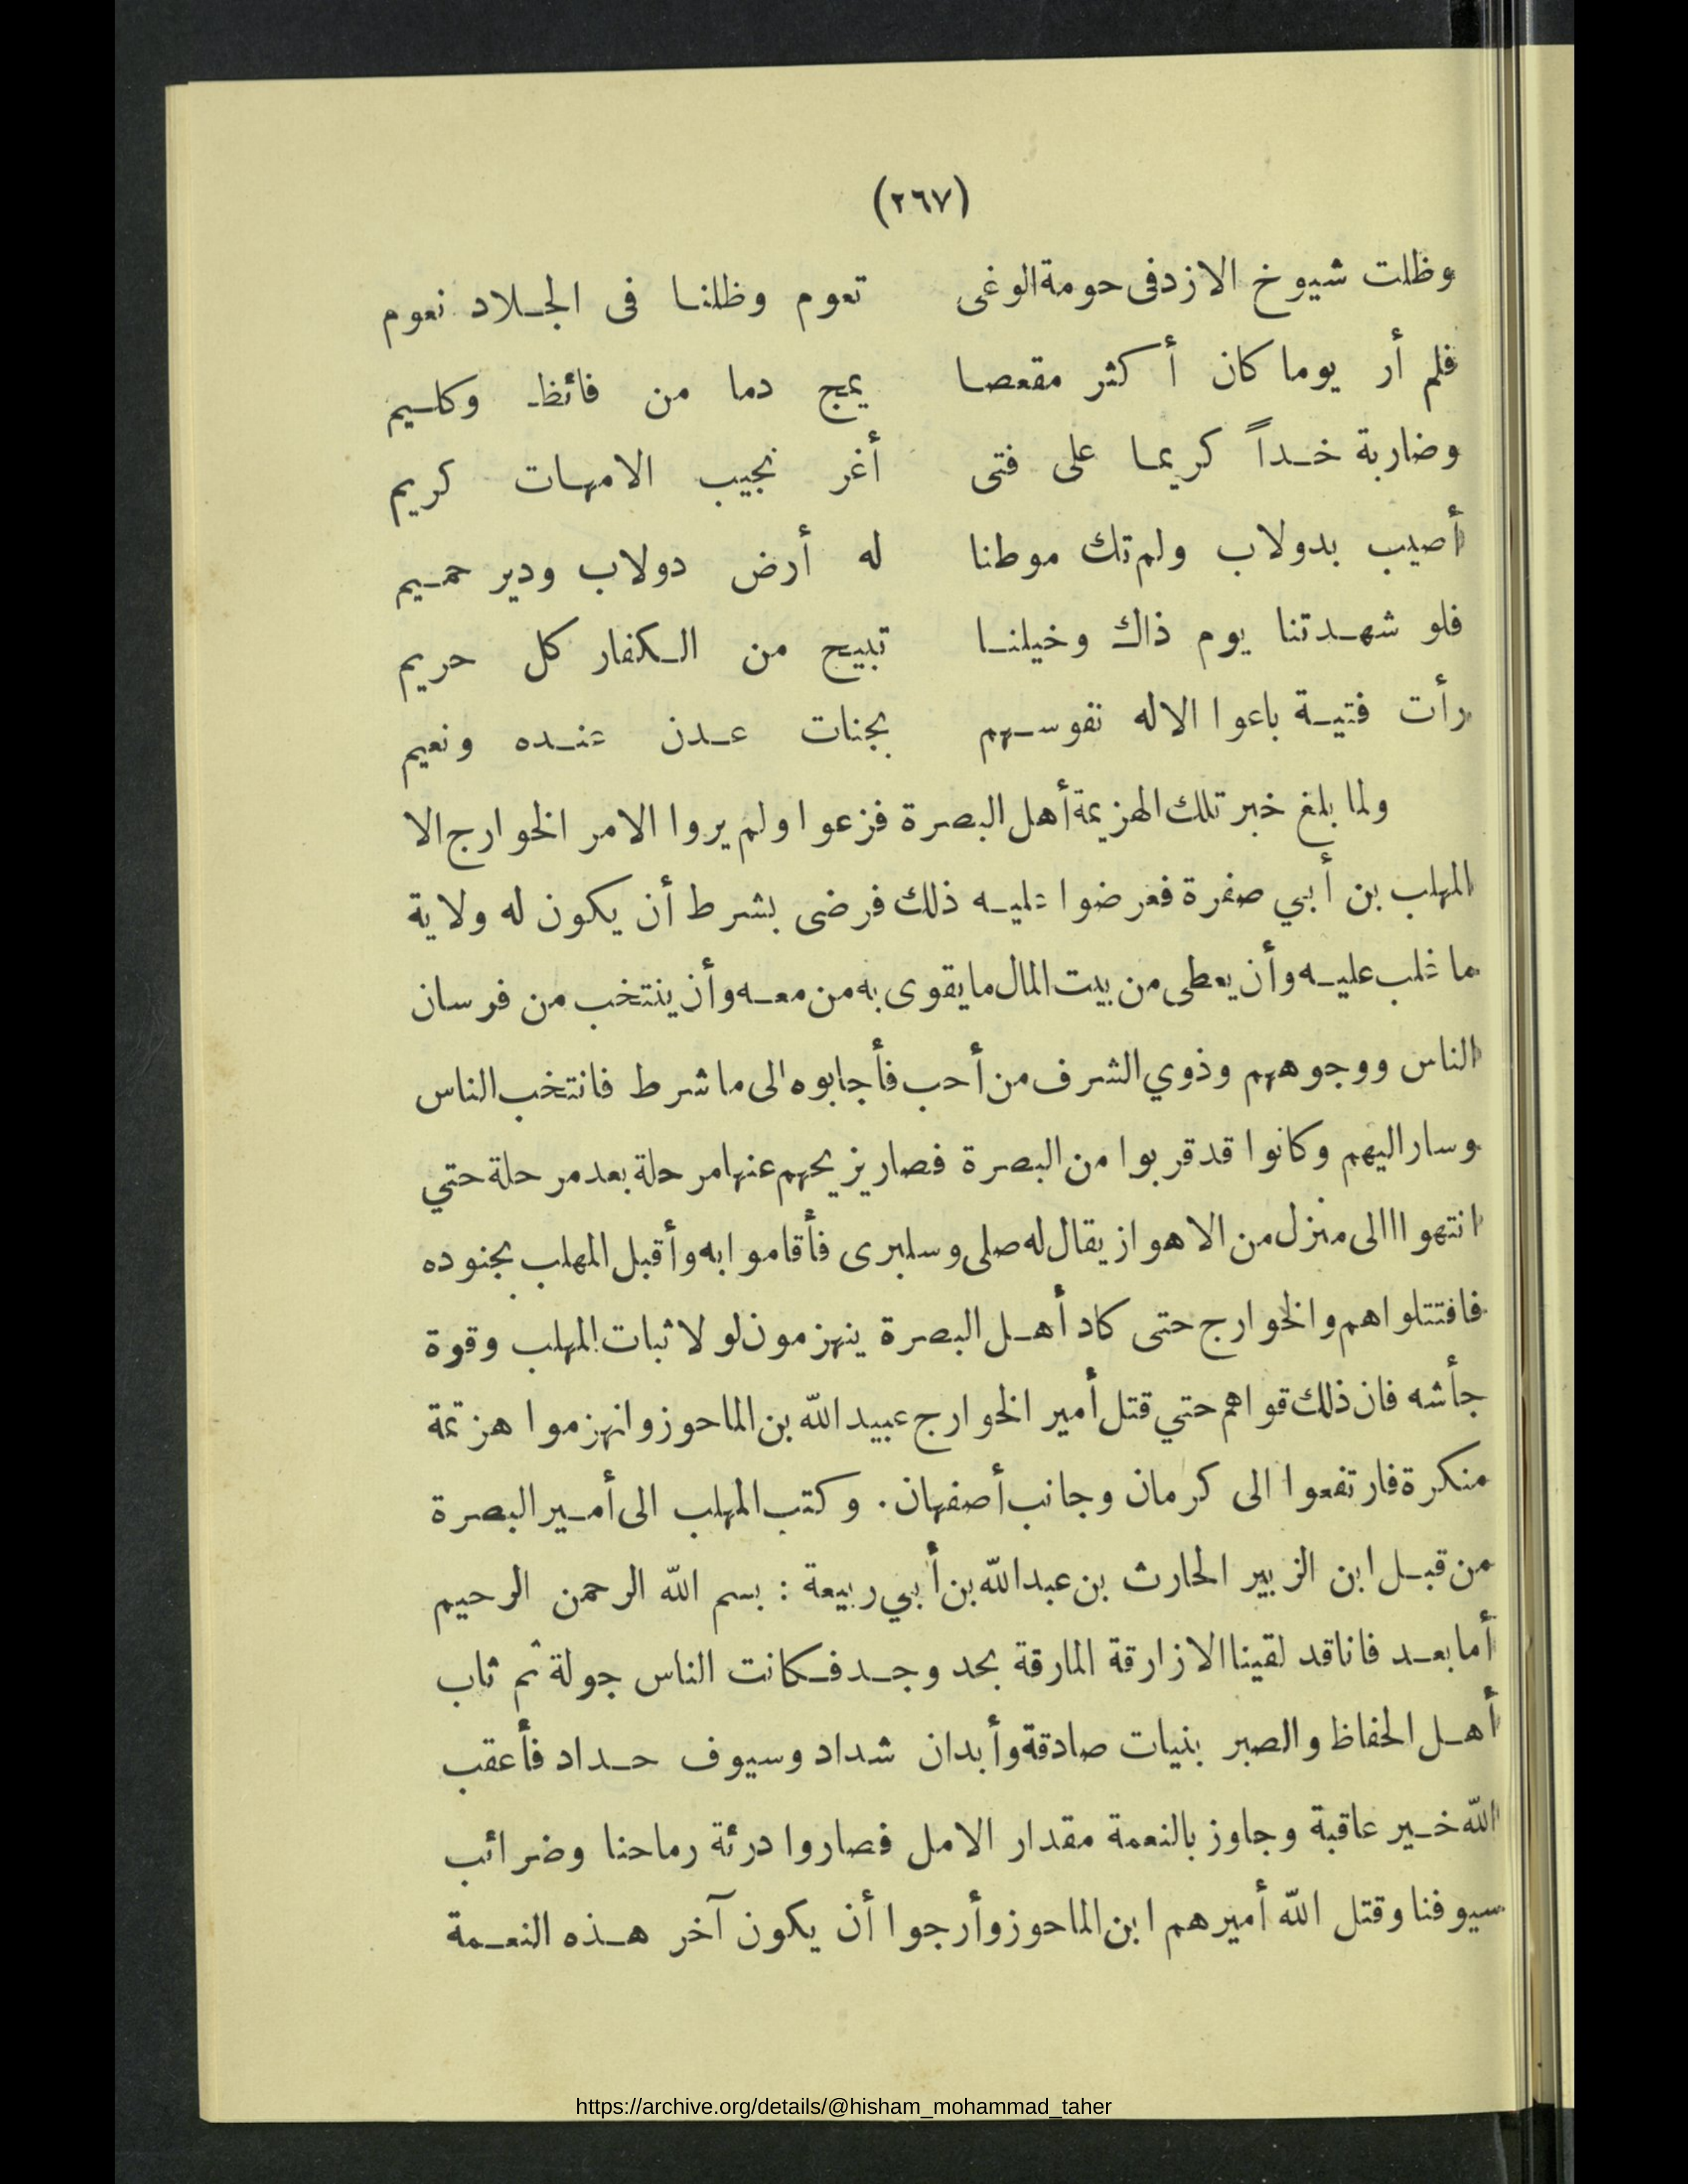 (٢٦٧)
وظلت شيوخ الازدفى حومة الوغى تعوم وظلنا فى الجلاد نعوم
فلم أر يوما كان أكثر مقعصا يمج دما من فائظ وكليم
وضاربة خداً كريما على فتى أغر نجيب الامهات كريم
أصيب بدولاب ولم تك موطنا له أرض دولاب ودير حميم
فلو شهدتنا يوم ذاك وخيلنا تبيح من الكفار كل حريم
رأت فتية باعوا الاله نفوسهم بجنات عدن عنده ونعيم
ولما بلغ خبر تلك الهزيمة أهل البصرة فزعوا ولم يروا الامر الخوارج الا
المهلب بن أبي صفرة فعرضوا عليه ذلك فرضى بشرط أن يكون له ولاية
ما غلب عليه وأن يعطى من بيت المال ما يقوى به من معه وأن ينتخب من فرسان
الناس ووجوههم وذوي الشرف من أحب فأجابوه الى ما شرط فانتخب الناس
وسار اليهم وكانوا قد قربوا من البصرة فصار يزيحهم عنها مرحلة بعد مرحلة حتي
انتهوا االى منزل من الاهواز يقال له صلى وسلبرى فأقاموا به وأقبل المهلب بجنوده
فافتتلوا هم والخوارج حتى كاد أهل البصرة ينهزمون لولا ثبات المهلب وقوة
جأشه فان ذلك قواهم حتي قتل أمير الخوارج عبيد الله بن الماحوز وانهزموا هزيمة
منكرة فارتفعوا الى كرمان وجانب أصفهان. وكتب المهلب الى أمير البصرة
من قبل ابن الزبير الحارث بن عبد الله بن أبي ربيعة : بسم الله الرحمن الرحيم
أما بعد فانا قد لقينا الازارقة المارقة بحد وجد فكانت الناس جولة ثم ثاب
أهل الحفاظ والصبر بنيات صادقة وأبدان شداد وسيوف حداد فأعقب
الله خير عاقبة وجاوز بالنعمة مقدار الامل فصاروا درئة رماحنا وضرائب
سيوفنا وقتل الله أميرهم ابن الماحوز وأرجوا أن يكون آخر هذه النعمة
https://archive.org/details/@hisham_mohammad_taher